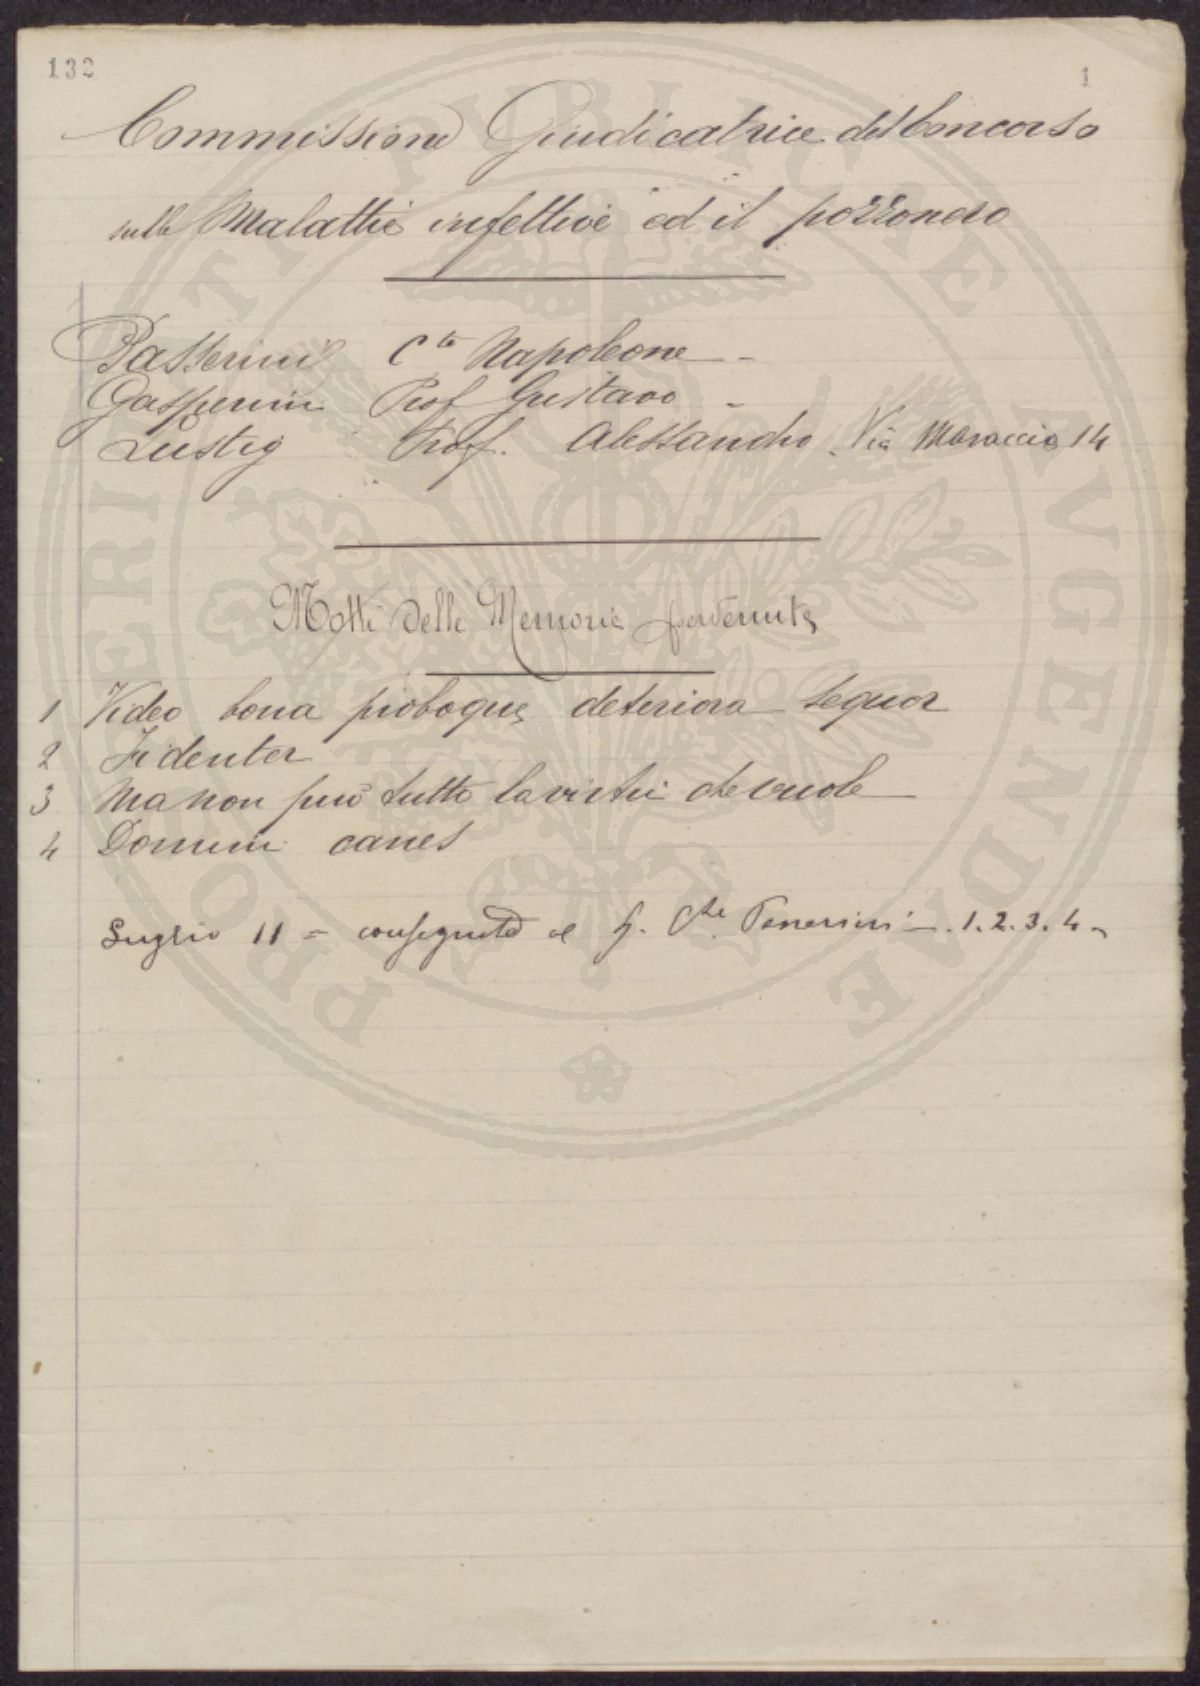 132
1
Commissione Giudicatrice del Concorso
sulle Malattie infettive ed il pozzonero
Passerini Cte Napoleone -
Gasperini Prof Gustavo -
Lustig Prof. Alessandro Via Maraccio 14
Motti delle Memorie pervenute
1 Video bona proboque deteriora sequor
2 Fidenter
3 Ma non può tutto la virtù che vuole
4 Domini canes
Luglio 11 = consegnato al S. Cte Passerini - 1. 2. 3. 4 -
PROSPERITATI PUBLICAE AVGENDAE